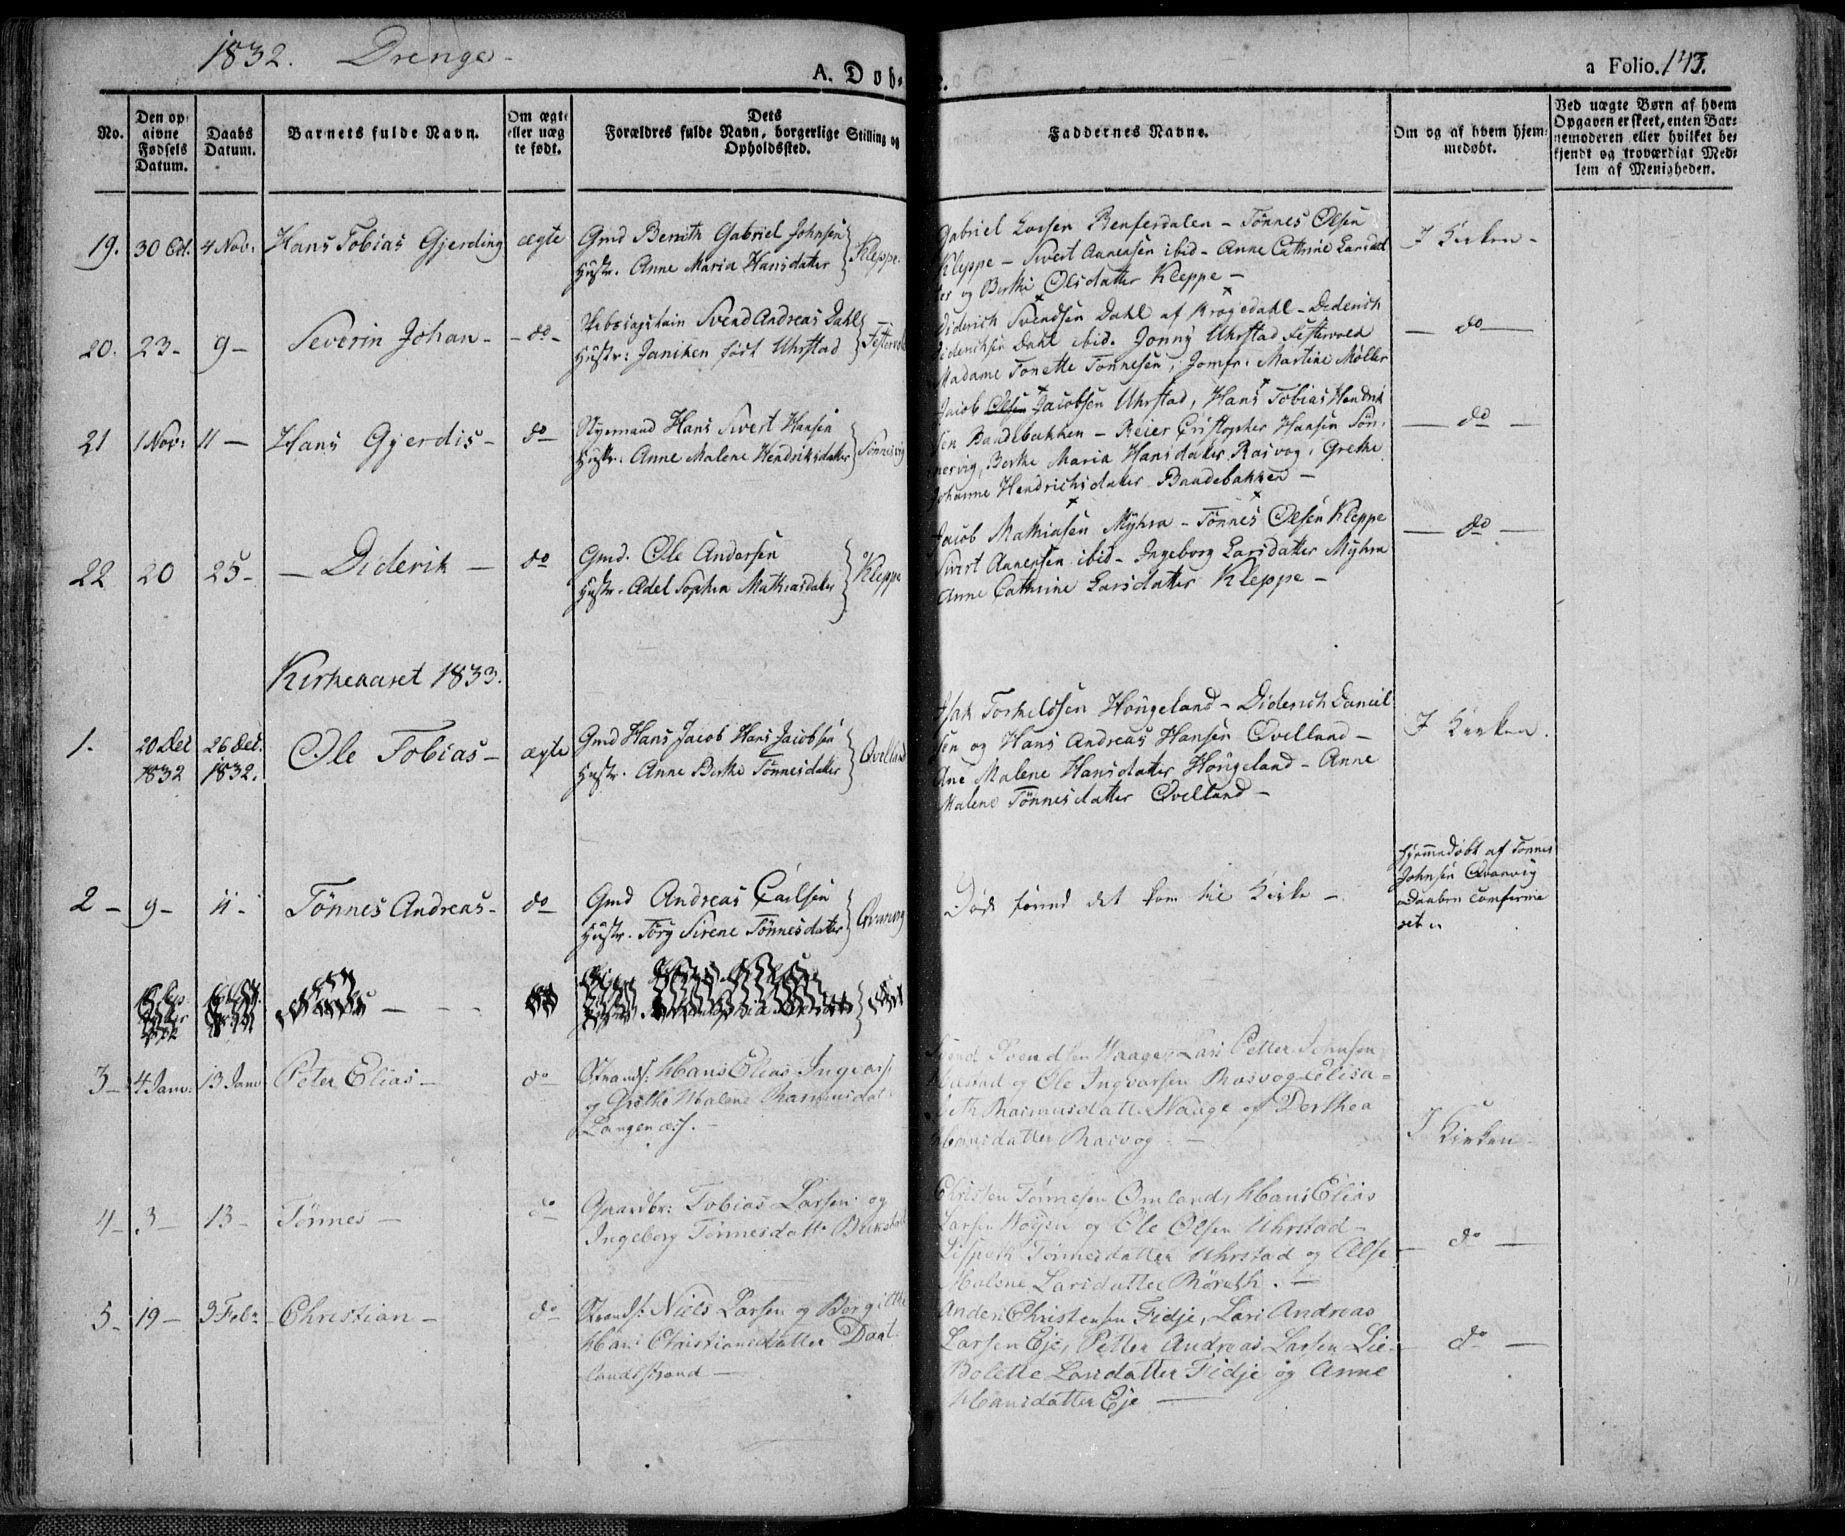 1832. Drenge-
A. Døb-
a Folio. 143.
No.
Den opgivne Fødsels Datum.
Daabs Datum.
Barnets fulde Navn.
Om ægte eller uægte født.
Dets Forældres fulde Navn, borgerlige Stilling og Opholdssted.
Faddernes Navne.
Om og af hvem hjemmedøbt.
Ved uægte Børn af hvem Opgaven er skeet, enten Barnemoderen eller hvilket bekjendt og troværdigt Medlem af Menigheden.
19. 30 Oct. 4 Nov: Hans Tobias Gjerding ægte
Gmd Benith Gabriel Johnsen
Hustr. Anne Maria Hansdatter
Kleppe.
Gabriel Larsen Renferdalen - Tønnes Olsen
Kleppe - Sivert Annensen ibid - Anne Cathrine Larsdat
ter og Berthe Olsdatter Kleppe -
I Kirken -
20. 23 - 9 - Severin Johan - do -
Svend Andreas Dahl
Hustr: Janiken født Uhrstad
Diderich Svendsen Dahl af Krogedahl - Dederich
Dideriksen Dahl ibid. Jonny Uhrstad Festervold
Madame Tonette Tønnesen, Jomfr. Martine Møller
- do -
21 1 Nov: 11 - Hans Gjerdis - do
Styrmand Hans Sivert Hansen
Hustr. Anne Malene Hendriksdatter
Sønnervig
Jacob Olsen Jacobsen Uhrstad, Hans Tobias Hendrik
sen Baadebakken - Reier Christopher Hansen Søn
nervig, Berthe Maria Hansdatter Rasvog, Grethe
Johanne Hendrichsdatter Baadebakken -
- do -
22 20 25 - - Diderik - do
Gmd. Ole Andersen
Hustr. Adel Sophia Mathiasdatter
Kleppe
Jacob Mathiasen Myhra - Tønnes Olsen Kleppe
Sivert Annensen ibid - Ingeborg Larsdatter Myhra
Anne Cathrine Larsdatter Kleppe -
- do -
Kirkeaaret 1833.
1. 20 Dec 1832 26 Dec. 1832. Ole Tobias - ægte
Gmd Hans Jacob Hans Jacobsen
Hustr. Anne Berthe Tønnesdatter
Qvelland
Isak Torkeldsen Høugeland - Diderich Daniel
sen og Hans Andreas Hansen Qvelland -
Ane Malene Hansdatter Høugeland - Anne
Malene Tønnesdatter Qvelland -
I Kirken.
2 - 9 - 11 - Tønnes Andreas - do
Gmd Andreas Carlsen
Hustr. Torg Sirene Tønnesdatter
Død forend det kom til Kirke -
Hjemmedøbt af Tønnes
Johnsen Qvanvig
Daaben comfirme
ret
3 - 4 Janv. 13 Janv Peter Elias - do
Strands: Hans Elias Ingvars:
og Malene Rasmusdat:
Langenæs. -
Svend Svendsen Haage, Lars Petter Johnsen
og Ole Ingvarsen Rasvog Elisa-
beth Rasmusdatter Haage og Dorthea
Hansdatter Rasvog. -
I Kirken
4 - 3 - 13 - Tønnes - do
Gaardbr: Tobias Larsen og
Ingeborg Tønnesdatt:
Christen Tønnesen Omland, Hans Elias
Larsen og Ole Olsen Uhrstad -
Lispeth Tønnesdatter Uhrstad og Else
Malene Larsdatter. -
- do -
5 - 19 - 3 Feb: - Christian - do
Strands: Niels Larsen og Bergitte
Hans Christiansdatter Daat
landsstrand -
Anders Christensen Fidje, Lars Andreas
Larsen Eje, Petter Andreas Larsen Lie
Bolette Larsdatter Fidje og Anne
Hansdatter Eje -
- do -